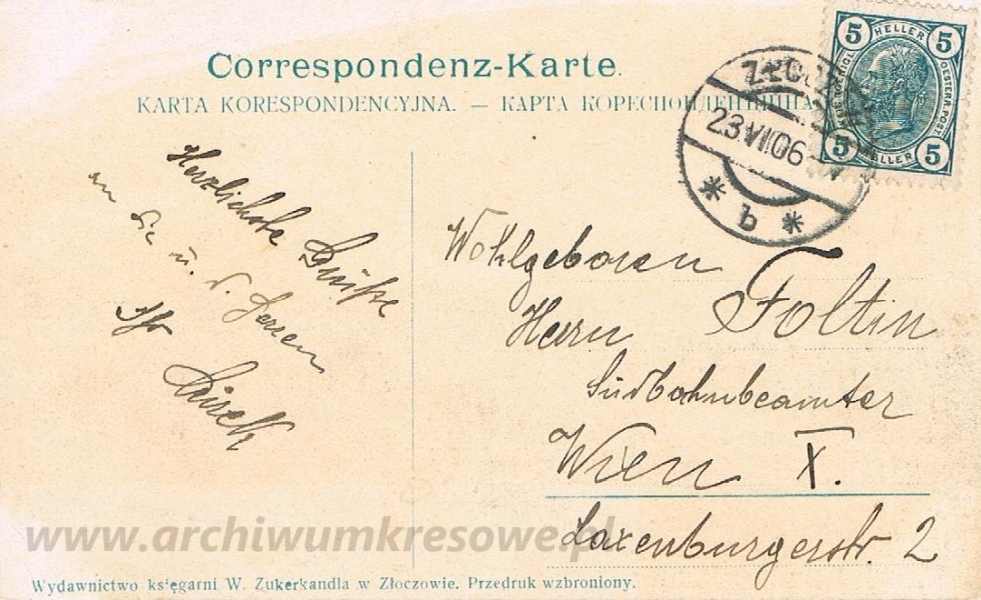 Correspondenz-Karte.
KARTA KORESPONDENCYJNA. — КАРТА КОРЕСПОНДЕНЦІЙНА
5 HELLER 5
5 HELLER 5
ZŁOCZ
23 VII 06
* b *
Herzlichste Grüße
an Sie u. d. Herren
Ihr
Wohlgeboren
Herrn Foltin
Südbahnbeamter
Wien X.
Laxenburgerstr. 2
www.archiwumkresowe.pl
Wydawnictwo księgarni W. Zukerkandla w Złoczowie. Przedruk wzbroniony.